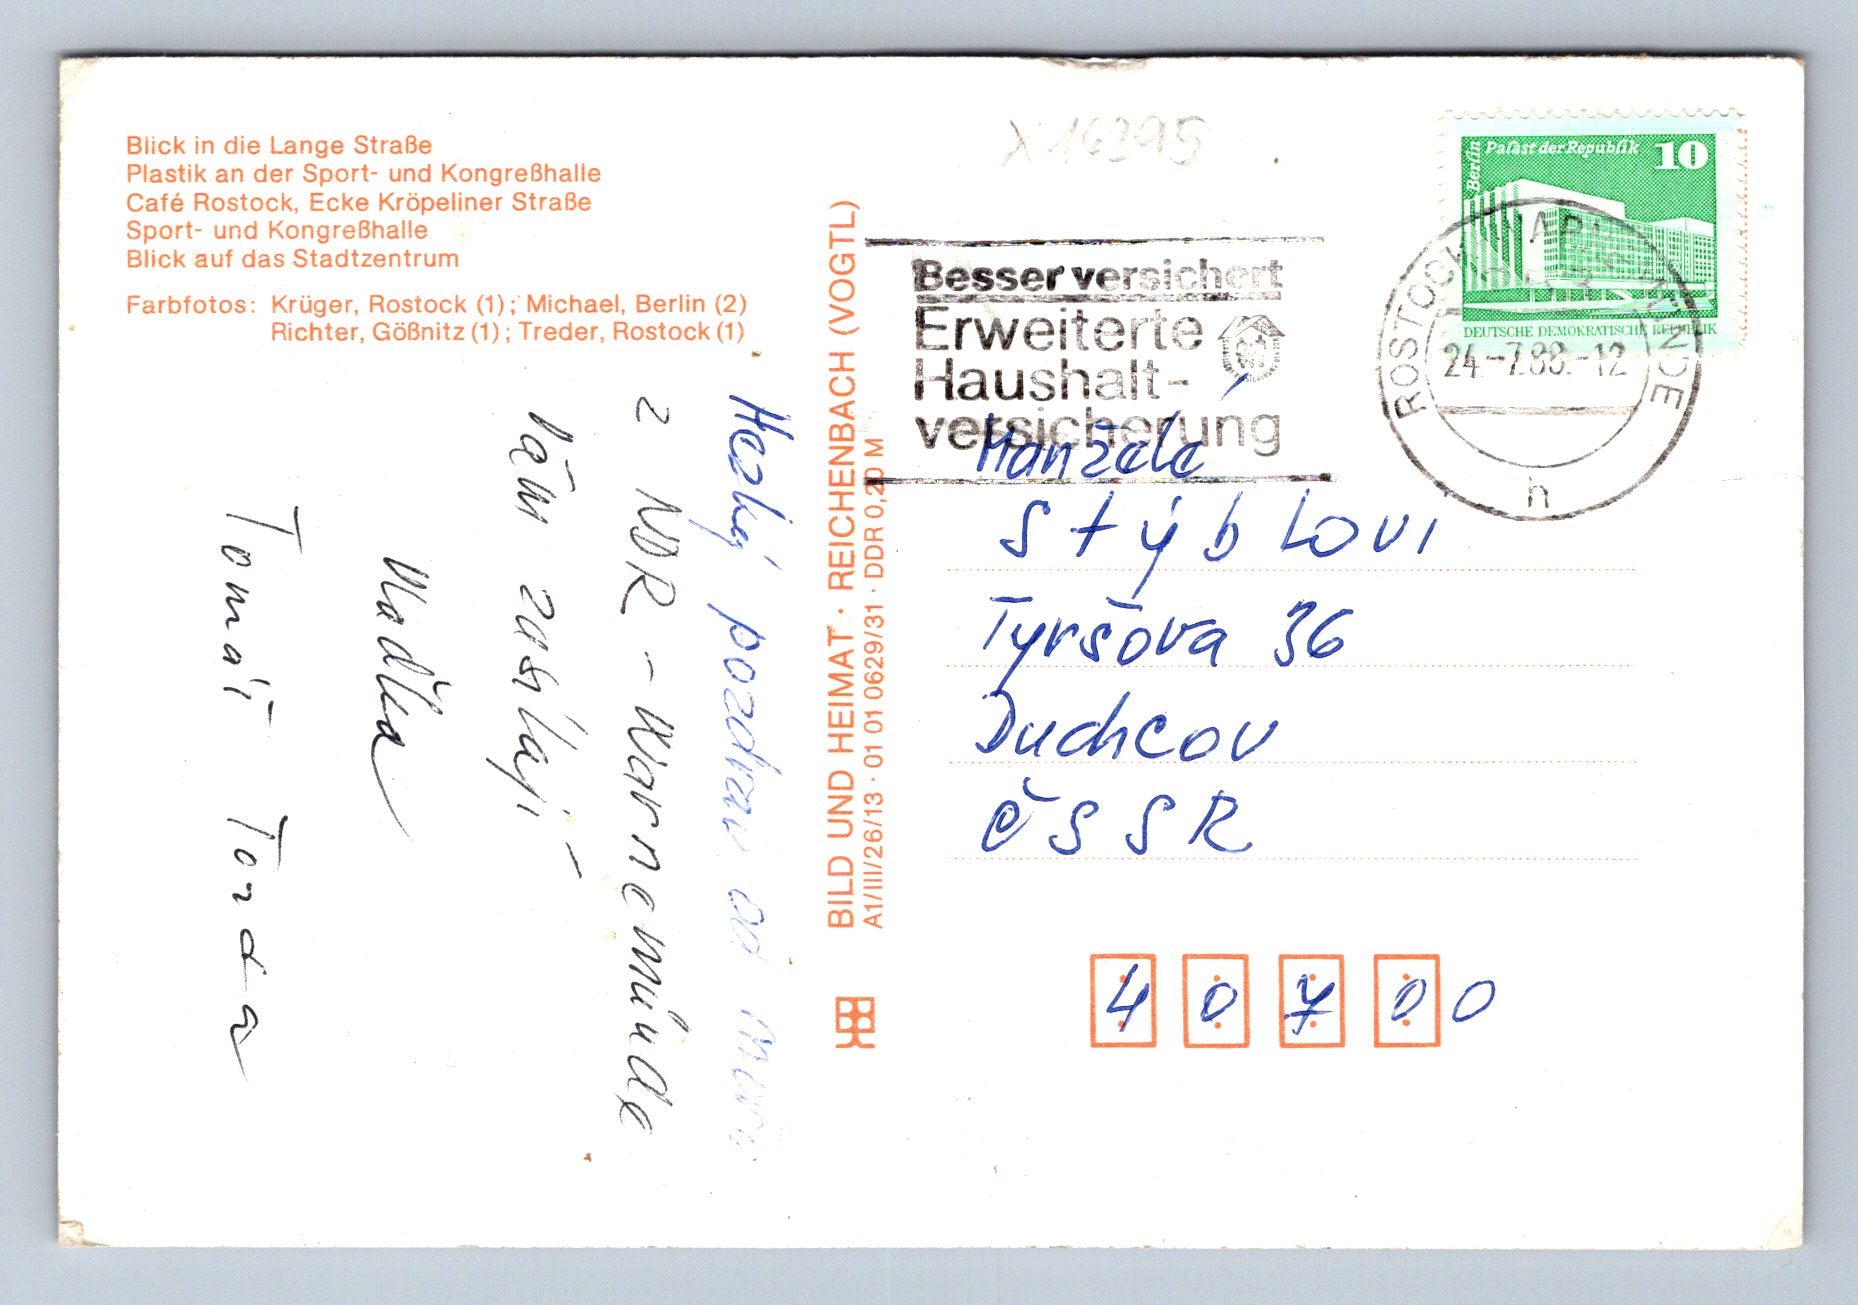 Blick in die Lange Straße
Plastik an der Sport- und Kongreßhalle
Café Rostock, Ecke Kröpeliner Straße
Sport- und Kongreßhalle
Blick auf das Stadtzentrum
Farbfotos: Krüger, Rostock (1); Michael, Berlin (2)
Richter, Gößnitz (1); Treder, Rostock (1)
Hezký pozdrav od moře
z NDR - Warnemünde
Vám zasílají
Maďka
Tomáš Tonda
BILD UND HEIMAT · REICHENBACH (VOGTL)
A1/III/26/13 · 01 01 0629/31 · DDR 0,20 M
X16295
Besser versichert
Erweiterte
Haushalt-
versicherung
Berlin
Palast der Republik
10
DEUTSCHE DEMOKRATISCHE REPUBLIK
ROSTOCK WARNEMÜNDE
24.-7.88.-12
h
Manželé
Stýblovi
Tyršova 36
Duchcov
ČSSR
40700